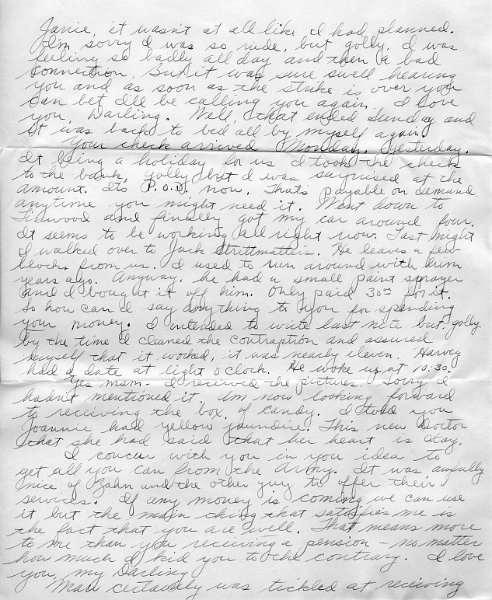 Janie, it wasn't at all like I had planned.
I'm sorry I was so rude, but golly, I was
feeling so badly all day and then a bad
connection. But it was sure swell hearing
you and as soon as the strike is over you
can bet I'll be calling you again. I love
you, Darling. Well, that ended Sunday and
it was back to bed all by myself again.
Your check arrived Monday, yesterday.
It being a holiday for us I took the check
to the bank, golly but I was surprised at the
amount. Its P.O.D. now. Thats payable on demand
anytime you might need it. Went down to
and finally got my car around four.
It seems to be working all right now. Last night
I walked over to Jack He leaves a few
blocks from us. I used to run around with him
years ago. Anyway, he had a small paint sprayer
and I bought it off him. Only paid 30 for it.
So how can I say anything to you for spending
your money. I intended to write last nite but golly
by the time I cleaned the contraption and assured
myself that it worked, it was nearly eleven. Harvey
had a date at eight o'clock. He woke up at 10:30.
Yes mam - I received the pictures. Sorry I
hadn't mentioned it. Am now looking forward
to receiving the box of candy. I told you
Joannie had yellow jaundice. This new Doctor
that she had said that her heart is okay.
I concur with you in you idea to
get all you can from the Army. It was awfully
nice of and the other guy to offer their
services. If any money is coming we can use
it but the main thing that satisfies me is
the fact that you are well. That means more
to me than you receiving a pension - no matter
how much I kid you to the contrary. I love
you, my Darling.
Mom certainly was tickled at receiving